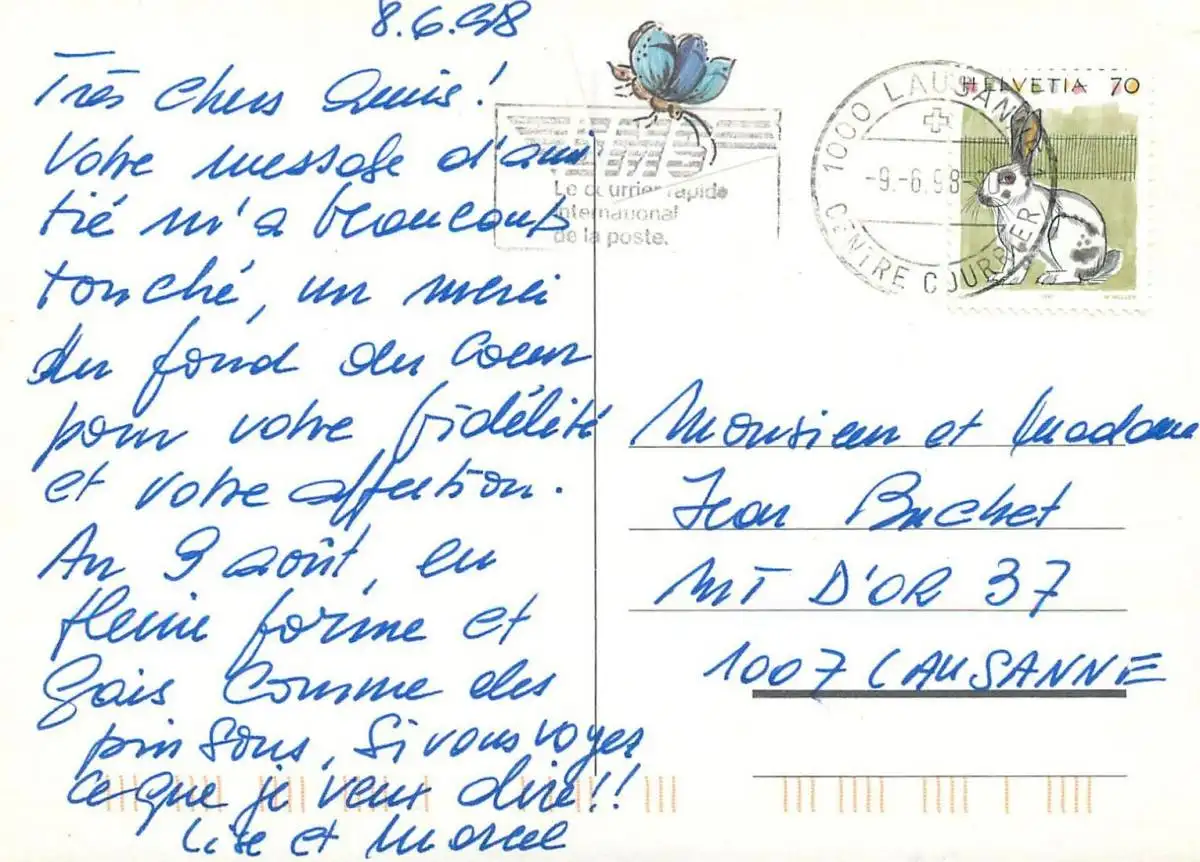 8.6.98
Très chers Amis!
Votre message d'ami
tié m'a beaucoup
touché, un merci
du fond du coeur
pour votre fidélité
et votre affection.
Au 9 août, en
pleine forme et
gais comme des
pinsons, si vous voyez
ce que je veux dire!!
Lise et Marcel
EMS
Le courrier rapide
international
de la poste.
1000 LAUSANNE
-9.-6.98
CENTRE COURRIER
HELVETIA 70
Monsieur et Madame
Jean Buchet
MT D'OR 37
1007 LAUSANNE